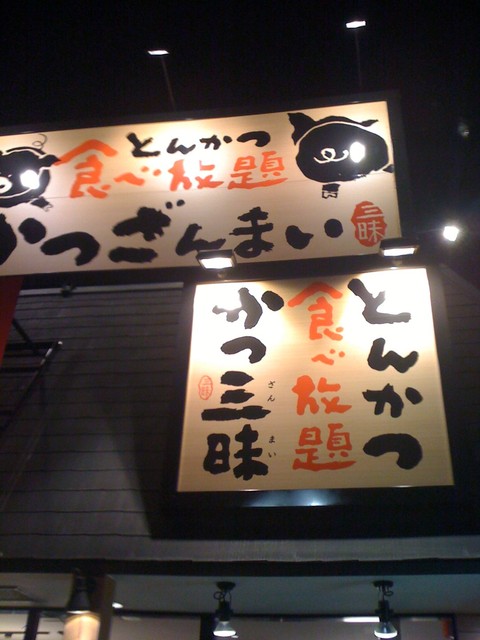 とんかつ
食べ放題
かつざんまい
三昧
とんかつ
食べ放題
かつ三昧
ざんまい
三昧